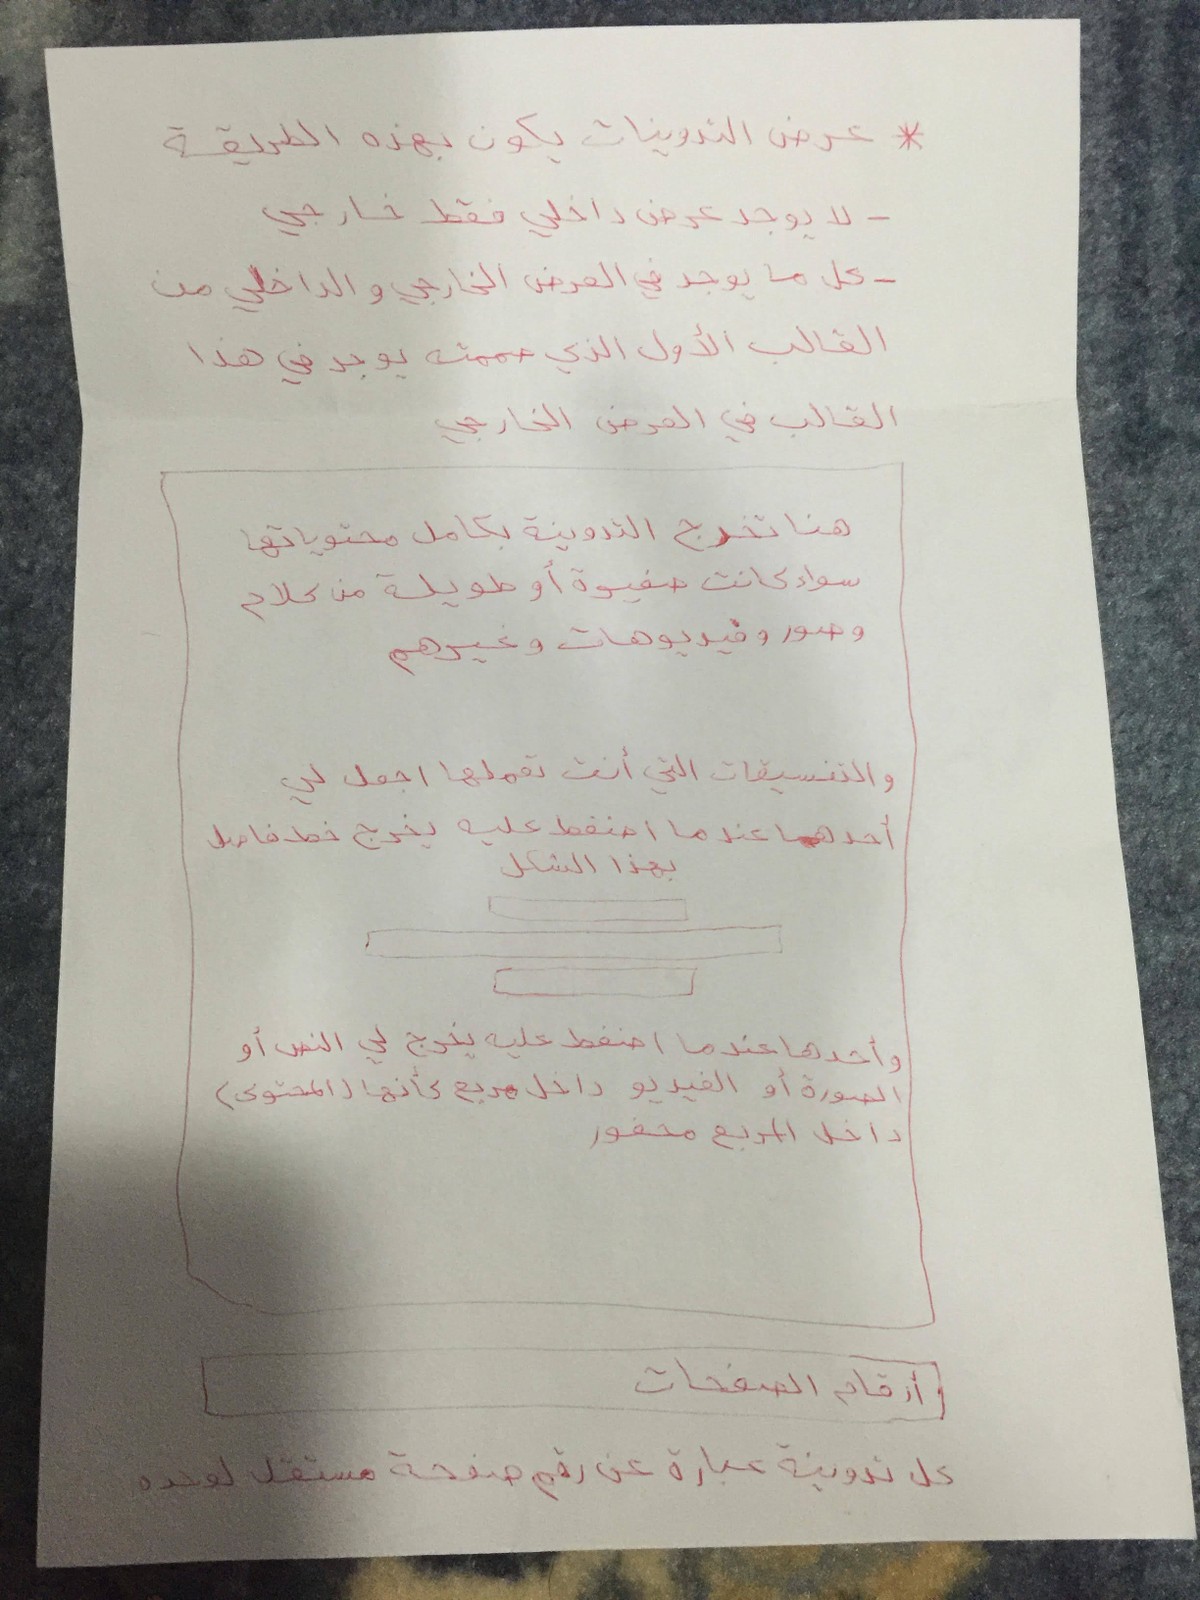 * عرض التدوينات يكون بهذه الطريقة
- لا يوجد عرض داخلي فقط خارجي
- كل ما يوجد في العرض الخارجي والداخلي من
القالب الأول الذي صممته يوجد في هذا
القالب في العرض الخارجي
هنا تخرج التدوينة بكامل محتوياتها
سواء كانت صغيرة أو طويلة من كلام
وصور وفيديوهات وغيرهم
والتنسيقات التي أنت تعملها اجعل لي
أحدهما عندما اضغط عليه يخرج خط فاصل
بهذا الشكل
وأحدها عندما اضغط عليه يخرج لي النص أو
الصورة أو الفيديو داخل مربع كأنها (المحتوى)
داخل المربع محفور
أرقام الصفحات
كل تدوينة عبارة عن رقم صفحة مستقل لوحده